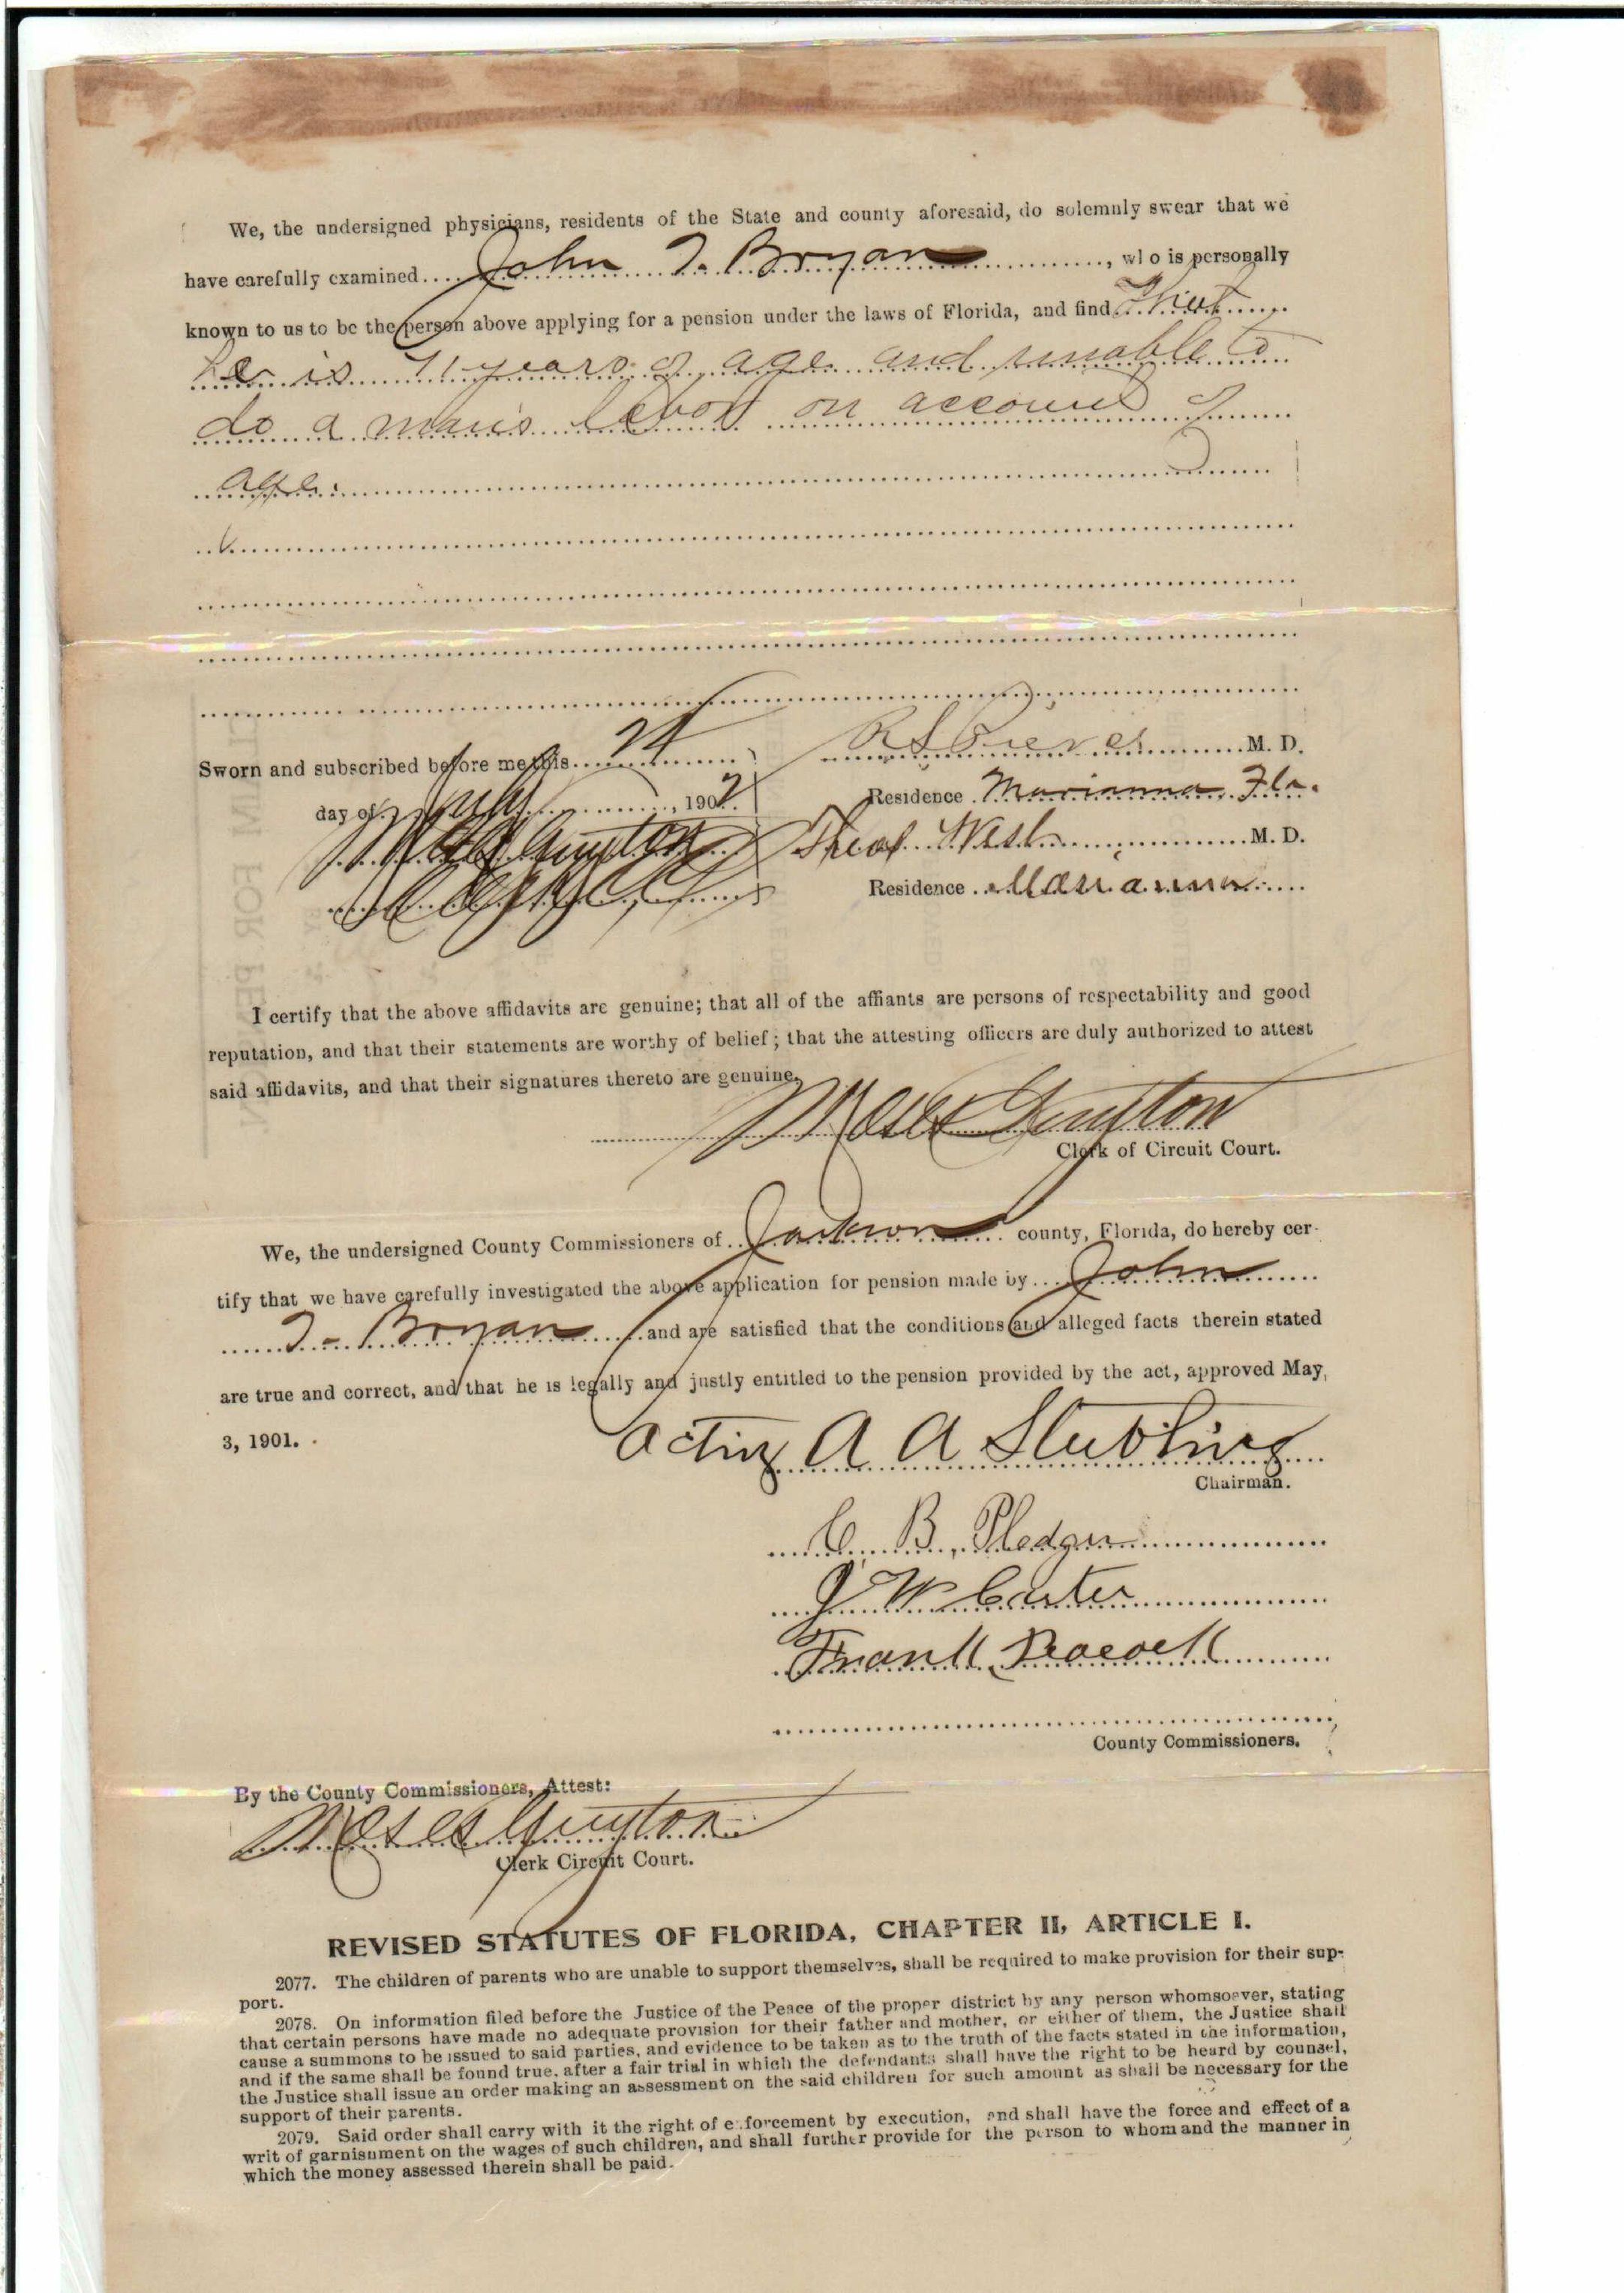 We, the undersigned physicians, residents of the State and county aforesaid, do solemnly swear that we
have carefully examined John T. Bryan, wl o is personally
known to us to be the person above applying for a pension under the laws of Florida, and find that
he is 71 years of age and unable to
do a man's labor on account of
age.
Sworn and subscribed before me this M. D.
day of July, 1902 Residence Marianna, Fla.
Theof West M. D.
Residence Marianna
I certify that the above affidavits are genuine; that all of the affiants are persons of respectability and good
reputation, and that their statements are worthy of belief; that the attesting officers are duly authorized to attest
said affidavits, and that their signatures thereto are genuine.
Moses Guyton
Clerk of Circuit Court.
We, the undersigned County Commissioners of Jackson county, Florida, do hereby cer-
tify that we have carefully investigated the above application for pension made by John
T. Bryan and are satisfied that the conditions and alleged facts therein stated
are true and correct, and that he is legally and justly entitled to the pension provided by the act, approved May,
3, 1901.
acting A A Stubbing
Chairman.
C. B. Pledger
J W Carter
Frank Peacock
County Commissioners.
By the County Commissioners, Attest:
Moses Guyton
Clerk Circuit Court.
REVISED STATUTES OF FLORIDA, CHAPTER II, ARTICLE I.
2077. The children of parents who are unable to support themselves, shall be required to make provision for their sup-
port.
2078. On information filed before the Justice of the Peace of the proper district by any person whomsoever, stating
that certain persons have made no adequate provision for their father and mother, or either of them, the Justice shall
cause a summons to be issued to said parties, and evidence to be taken as to the truth of the facts stated in the information,
and if the same shall be found true, after a fair trial in which the defendants shall have the right to be heard by counsel,
the Justice shall issue an order making an assessment on the said children for such amount as shall be necessary for the
support of their parents.
2079. Said order shall carry with it the right of e forcement by execution, and shall have the force and effect of a
writ of garnishment on the wages of such children, and shall further provide for the person to whom and the manner in
which the money assessed therein shall be paid.